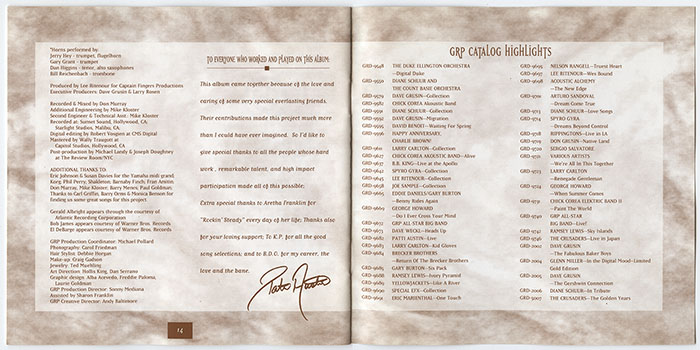 *Horns performed by:
Jerry Hey - trumpet, flugelhorn
Gary Grant - trumpet
Dan Higgins - tenor, alto saxophones
Bill Reichenbach - trombone
Produced by Lee Ritenour for Captain Fingers Productions
Executive Producers: Dave Grusin & Larry Rosen
Recorded & Mixed by Don Murray
Additional Engineering by Mike Kloster
Second Engineer & Technical Asst.: Mike Kloster
Recorded at: Sunset Sound, Hollywood, CA.
Starlight Studios, Malibu, CA.
Digital editing by Robert Vosgien at CMS Digital
Mastered by Wally Traugott at
Capitol Studios, Hollywood, CA.
Post-production by Michael Landy & Joseph Doughney
at The Review Room/NYC
ADDITIONAL THANKS TO:
Eric Johnson & Susan Davies for the Yamaha midi grand,
Korg, Phil Perry, Shaldeion, Barnaby Finch, Fran Amitin,
Don Murray, Mike Kloster, Barry Menes, Paul Goldman.
Thanks to Carl Griffin, Barry Orms & Monica Benson for
finding us some great songs for this project
Gerald Albright appears through the courtesy of
Atlantic Recording Corporation
Bob James appears courtesy of Warner Bros. Records
El DeBarge appears courtesy of Warner Bros. Records
GRP Production Coordinator: Michael Pollard
Photography: Carol Friedman
Hair Stylist: Debbie Horgan
Make-up: Craig Gadson
Jewelry: Ted Muehling
Art Direction: Hollis King, Dan Serrano
Graphic design: Alba Acevedo, Freddie Paloma,
Laurie Goldman
GRP Production Director: Sonny Mediana
Assisted by Sharon Franklin
GRP Creative Director: Andy Baltimore
14
TO EVERYONE WHO WORKED AND PLAYED ON THIS ALBUM:
This album came together because of the love and
caring of some very special everlasting friends.
Their contributions made this project much more
than I could have ever imagined. So I'd like to
give special thanks to all the people whose hard
work, remarkable talent, and high impact
participation made all of this possible;
Extra special thanks to Aretha Franklin for
"Rockin' Steady" every day of her life; Thanks also
for your loving support; To K.P. for all the good
song selections; and to B.D.O. for my career, the
love and the bane.
GRP CATALOG HIGHLIGHTS
GRD-9548 THE DUKE ELLINGTON ORCHESTRA
—Digital Duke
GRD-9550 DIANE SCHUUR AND
THE COUNT BASIE ORCHESTRA
GRD-9579 DAVE GRUSIN—Collection
GRD-9582 CHICK COREA Akoustic Band
GRD-9591 DIANE SCHUUR—Collection
GRD-9592 DAVE GRUSIN—Migration
GRD-9595 DAVID BENOIT—Waiting For Spring
GRD-9596 HAPPY ANNIVERSARY,
CHARLIE BROWN!
GRD-9611 LARRY CARLTON—Collection
GRD-9627 CHICK COREA AKOUSTIC BAND—Alive
GRD-9637 B.B. KING—Live at the Apollo
GRD-9642 SPYRO GYRA—Collection
GRD-9645 LEE RITENOUR—Collection
GRD-9658 JOE SAMPLE—Collection
GRD-9665 EDDIE DANIELS/GARY BURTON
—Benny Rides Again
GRD-9669 GEORGE HOWARD
—Do I Ever Cross Your Mind
GRD-9672 GRP ALL-STAR BIG BAND
GRD-9673 DAVE WECKL—Heads Up
GRD-9682 PATTI AUSTIN—Live
GRD-9683 LARRY CARLTON—Kid Gloves
GRD-9684 BRECKER BROTHERS
—Return Of The Brecker Brothers
GRD-9685 GARY BURTON—Six Pack
GRD-9688 RAMSEY LEWIS—Ivory Pyramid
GRD-9689 YELLOWJACKETS—Like A River
GRD-9690 SPECIAL EFX—Collection
GRD-9691 ERIC MARIENTHAL—One Touch
GRD-9695 NELSON RANGELL—Truest Heart
GRD-9697 LEE RITENOUR—Wes Bound
GRD-9698 ACOUSTIC ALCHEMY
—The New Edge
GRD-9701 ARTURO SANDOVAL
—Dream Come True
GRD-9714 SPYRO GYRA
—Dreams Beyond Control
GRD-9718 RIPPINGTONS—Live in LA
GRD-9719 DON GRUSIN—Native Land
GRD-9720 SERGIO SALVATORE
GRD-9721 VARIOUS ARTISTS
—We're All In This Together
GRD-9723 LARRY CARLTON
—Renegade Gentleman
GRD-9724 GEORGE HOWARD
—When Summer Comes
GRD-9731 CHICK COREA ELEKTRIC BAND II
—Paint The World
GRD-9740 GRP ALL-STAR
BIG BAND—Live!
GRD-9742 RAMSEY LEWIS—Sky Islands
GRD-9746 THE CRUSADERS—Live in Japan
GRD-2002 DAVE GRUSIN
—The Fabulous Baker Boys
GRD-2004 GLENN MILLER—In the Digital Mood-Limited
Gold Edition
GRD-2005 DAVE GRUSIN
—The Gershwin Connection
GRD-2006 DIANE SCHUUR—In Tribute
GRD-5007 THE CRUSADERS—The Golden Years